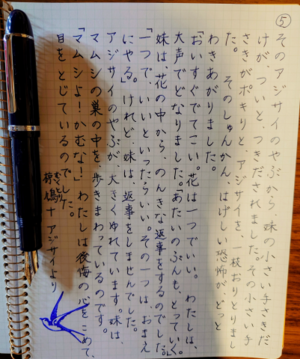 ⑤
そのアジサイのやぶから、妹の小さい手さきだ
けが、ついと、つきだされました。その小さい手
さきがポキリと、アジサイを、一枝おりとりまし
た。 そのしゅんかん、はげしい恐怖がどっと
わきあがりました。
「おいすぐでてこい。花は一つでいい。」わたしは、
大声でどなりました。「あたいのぶんも、とっていく。」
妹は、花の中から、のんきな返事をするのでした。
「一つで、いいといったらいい。その一つは、おまえ
にやる。」けれど、妹は、返事をしませんでした。
アジサイのやぶが、大きくゆれています。妹は、
マムシの巣の中を、歩きまわっているのです。
「マムシよ!かむな!」わたしは後悔の心をこめて、
目をとじているのでした。
椋鳩十 アジサイより